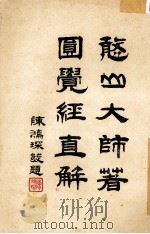 憨山大師著
圓覺經直解
陳鴻琛敬題